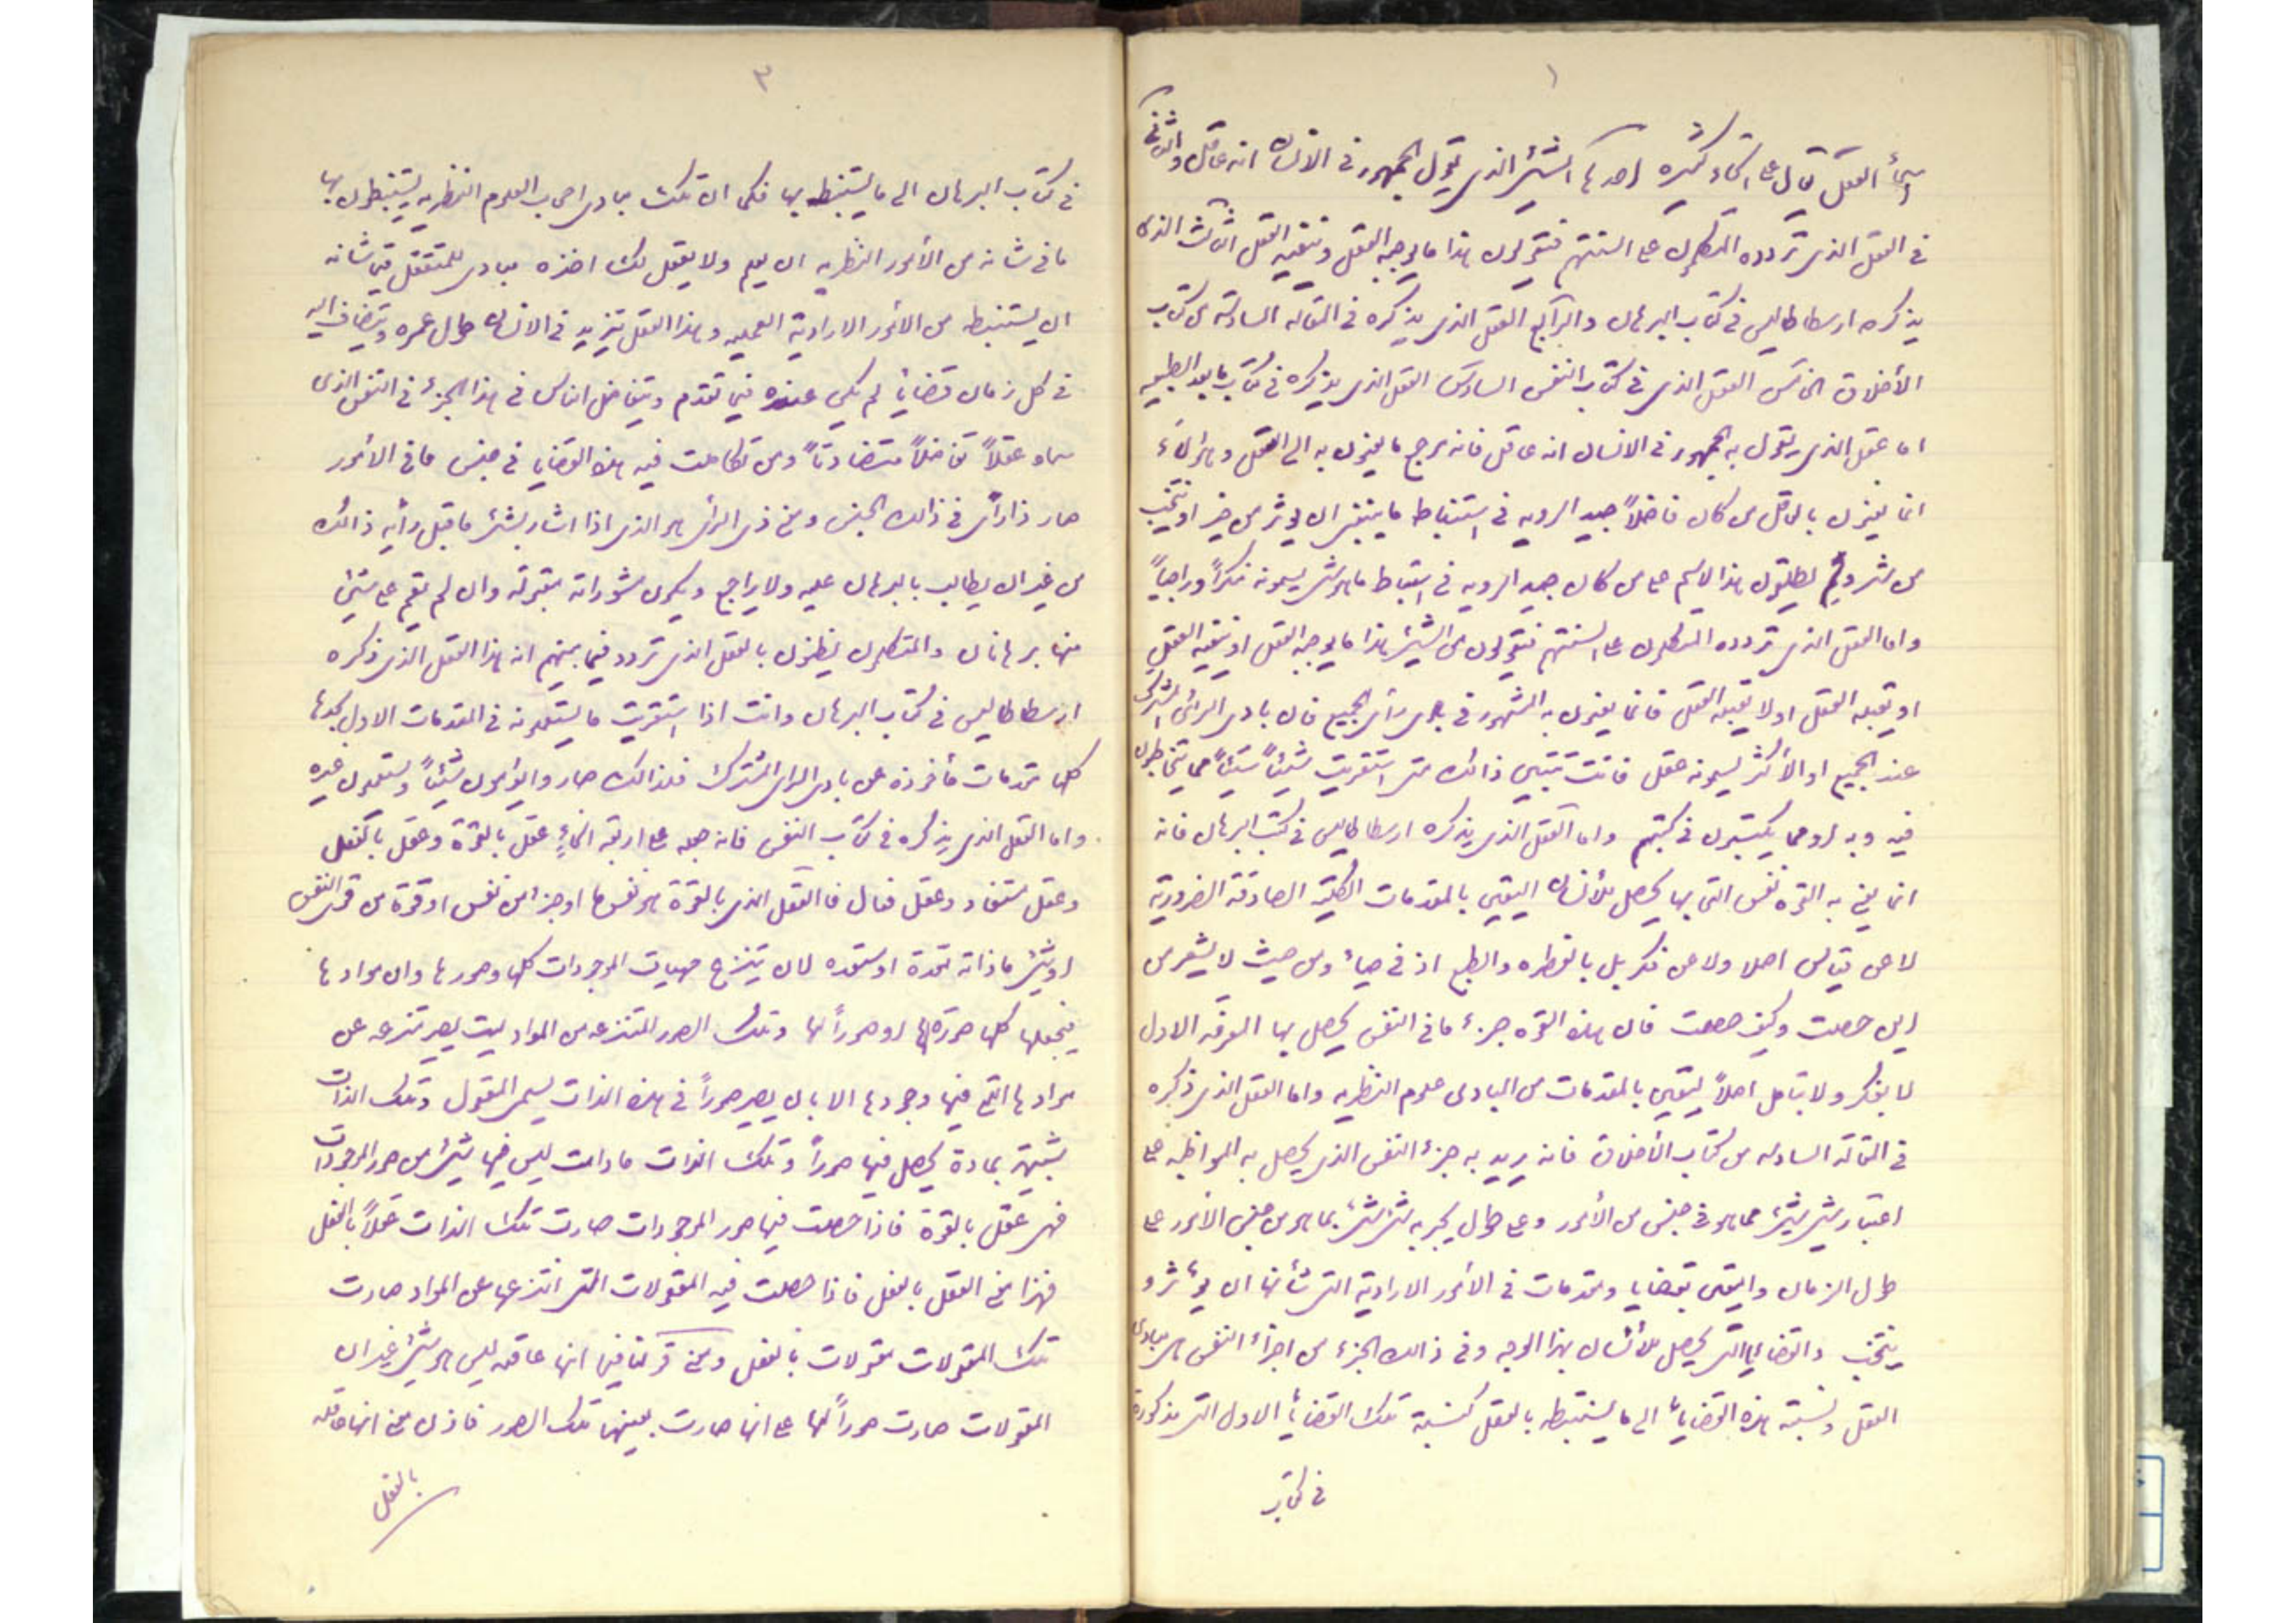 ١
اسم العقل يقال على انحاء كثيره احدها الشئ الذى يقول الجمهور فى الانسان انه عاقل والثانى
فى العقل الذى تردده المتكلمون على السنتهم فيقولون هذا ما يوجبه العقل وينفيه العقل الثالث الذى
يذكره ارسطاطاليس فى كتاب البرهان والرابع العقل الذى يذكره فى المقاله السادسة من كتاب
الأخلاق الخامس العقل الذى فى كتاب النفس السادس العقل الذى يذكره فى كتاب ما بعد الطبيعه
اما عقل الذى يقول به الجمهور فى الانسان انه عاقل فانه مرجع ما يعنون به الى التعقل وهؤلاء
انما يعنون بالعاقل من كان فاضلاً جيد الرويه فى استنباط ما ينبغى ان يؤثر من خير او يتجنب
من شر ولم يطلقون هذا الاسم على من كان جيد الرويه فى استنباط ما هو شر يسمونه نكراً ودا
واما العقل الذى تردده المتكلمون على السنتهم فيقولون من الشئ هذا ما يوجبه العقل او ينفيه العقل
او يقبله العقل اولا يقبله العقل فانما يعنون به المشهور فى بادى رأى الجميع فان بادى الرأى المشترك
عند الجميع او الأكثر يسمونه عقل فانت تتبين ذالك متى استقريت شيئاً شيئاً مما يتخاطبون
فيه وبه او مما يكتبون فى كتبهم واما العقل الذى يذكره ارسطاطاليس فى كتب البرهان فانه
انما يعنى به القوه نفس التى بها يحصل للأنسان اليقين بالمقدمات الكلية الصادقة الضرورية
لا عن قياس اصلا ولا عن فكر بل بالفطره والطبع اذ فى صبائه ومن حيث لا يشعر من
اين حصلت وكيف حصلت فان هذه القوه جزء ما فى النفس يحصل بها المعرفه الاول
لا بفكر ولا بتامل اصلاً ليقين بالمقدمات من المبادى علوم النظريه واما العقل الذى ذكره
فى المقالة السادسه من كتاب الأخلاق فانه يريد به جزء النفس الذى يحصل به المواظبه على
اعتبار شئ شئ مما هو فى جنس من الأمور وعلى طول تجربه شئ شئ مما هو من جنس الأمور على
طول الزمان واليقين بقضايا ومقدمات فى الأمور الارادية التى شأنها ان يؤثر و
يتجنب والقضايا التى يحصل للأنسان بهذا الوجه وفى ذالك الجزء من اجزاء النفس هو مبادى
العقل ونسبة هذه القضايا الى ما يستنبطه بالعقل كنسبة تلك القضايا الاول التى مذكورة
فى كتاب
٣
فى كتاب البرهان الى ما يستنبط بها فكما ان تلك مبادى اصحاب العلوم النظريه يستنبطون بها
ما فى شانه من الأمور النظريه ان يعلم ولا يفعل تلك اخذه مبادى للمتعقل فيما شانه
ان يستنبط من الأمور الارادية العمليه وهذا العقل تزيد فى الانسان طول عمره وينضاف اليه
فى كل زمان قضايا لم يكن عنده فيما تقدم ويتفاضل الناس فى هذا الجزء فى النفس الذى
سماه عقلاً تفاضلاً متفاوتاً ومن تكاملت فيه هذه القضايا فى جنس ما فى الأمور
صار ذا رأى فى ذالك الجنس ومعنى ذى الرأى هو الذى اذا اشار بشئ ما قبل رأيه ذالك
من غير ان يطالب بالبرهان عليه ولا يراجع ويكون مشوراته مقبولة وان لم يقم على شئ
منها برهانان والمتكلمون يظنون بالعقل الذى تردد فيما بينهم انه هذا العقل الذى ذكره
ارسطاطاليس فى كتاب البرهان وانت اذا استقريت ما يستعملونه فى المقدمات الاول تجدها
كلها مقدمات مأخوذه عن بادى الراى المشترك فلذالك صاروا يؤمون شيئاً ويستعملون غيره
واما العقل الذى يذكره فى كتاب النفس فانه جعله على اربعة انحاء عقل بالقوة وعقل بالفعل
وعقل مستفاد وعقل فعال فا العقل الذى بالقوة هو نفس ما او جزء من نفس او قوة من قوى النفس
او شئ ما ذاته معدة او مستعده لان ينتزع مهيات الموجودات كلها وصورها دان موادها
فيجعلها كلها صورة لها او صوراً لها وتلك الصور المنتزعه من المواد ليست يصير منتزعه عن
موادها التى فيها وجودها الا بان يصير صوراً فى هذه الذات يسمى المعقول وتلك الذات
شبيهة بمادة يحصل فيها صوراً وتلك الذات مادامت ليس فيها شئ من صور الموجودات
فهى عقل بالقوة فاذا حصلت فيها صور الموجودات صارت تلك الذات عقلاً بالفعل
فهذا معنى العقل بالفعل فاذا حصلت فيه المعقولات التى انتزعها عن المواد صارت
تلك المعقولات معقولات بالفعل ومعنى قولنا فيها انها عاقله ليس هو شئ غير ان
المعقولات صارت صوراً لها على انها صارت بعينها تلك الصور فاذن معنى انها عاقله
بالفعل